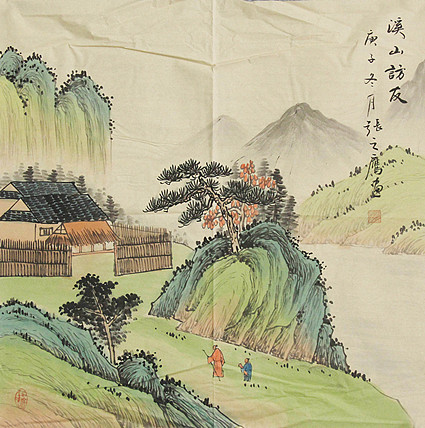 溪山訪友
庚子冬月張之鷹畫